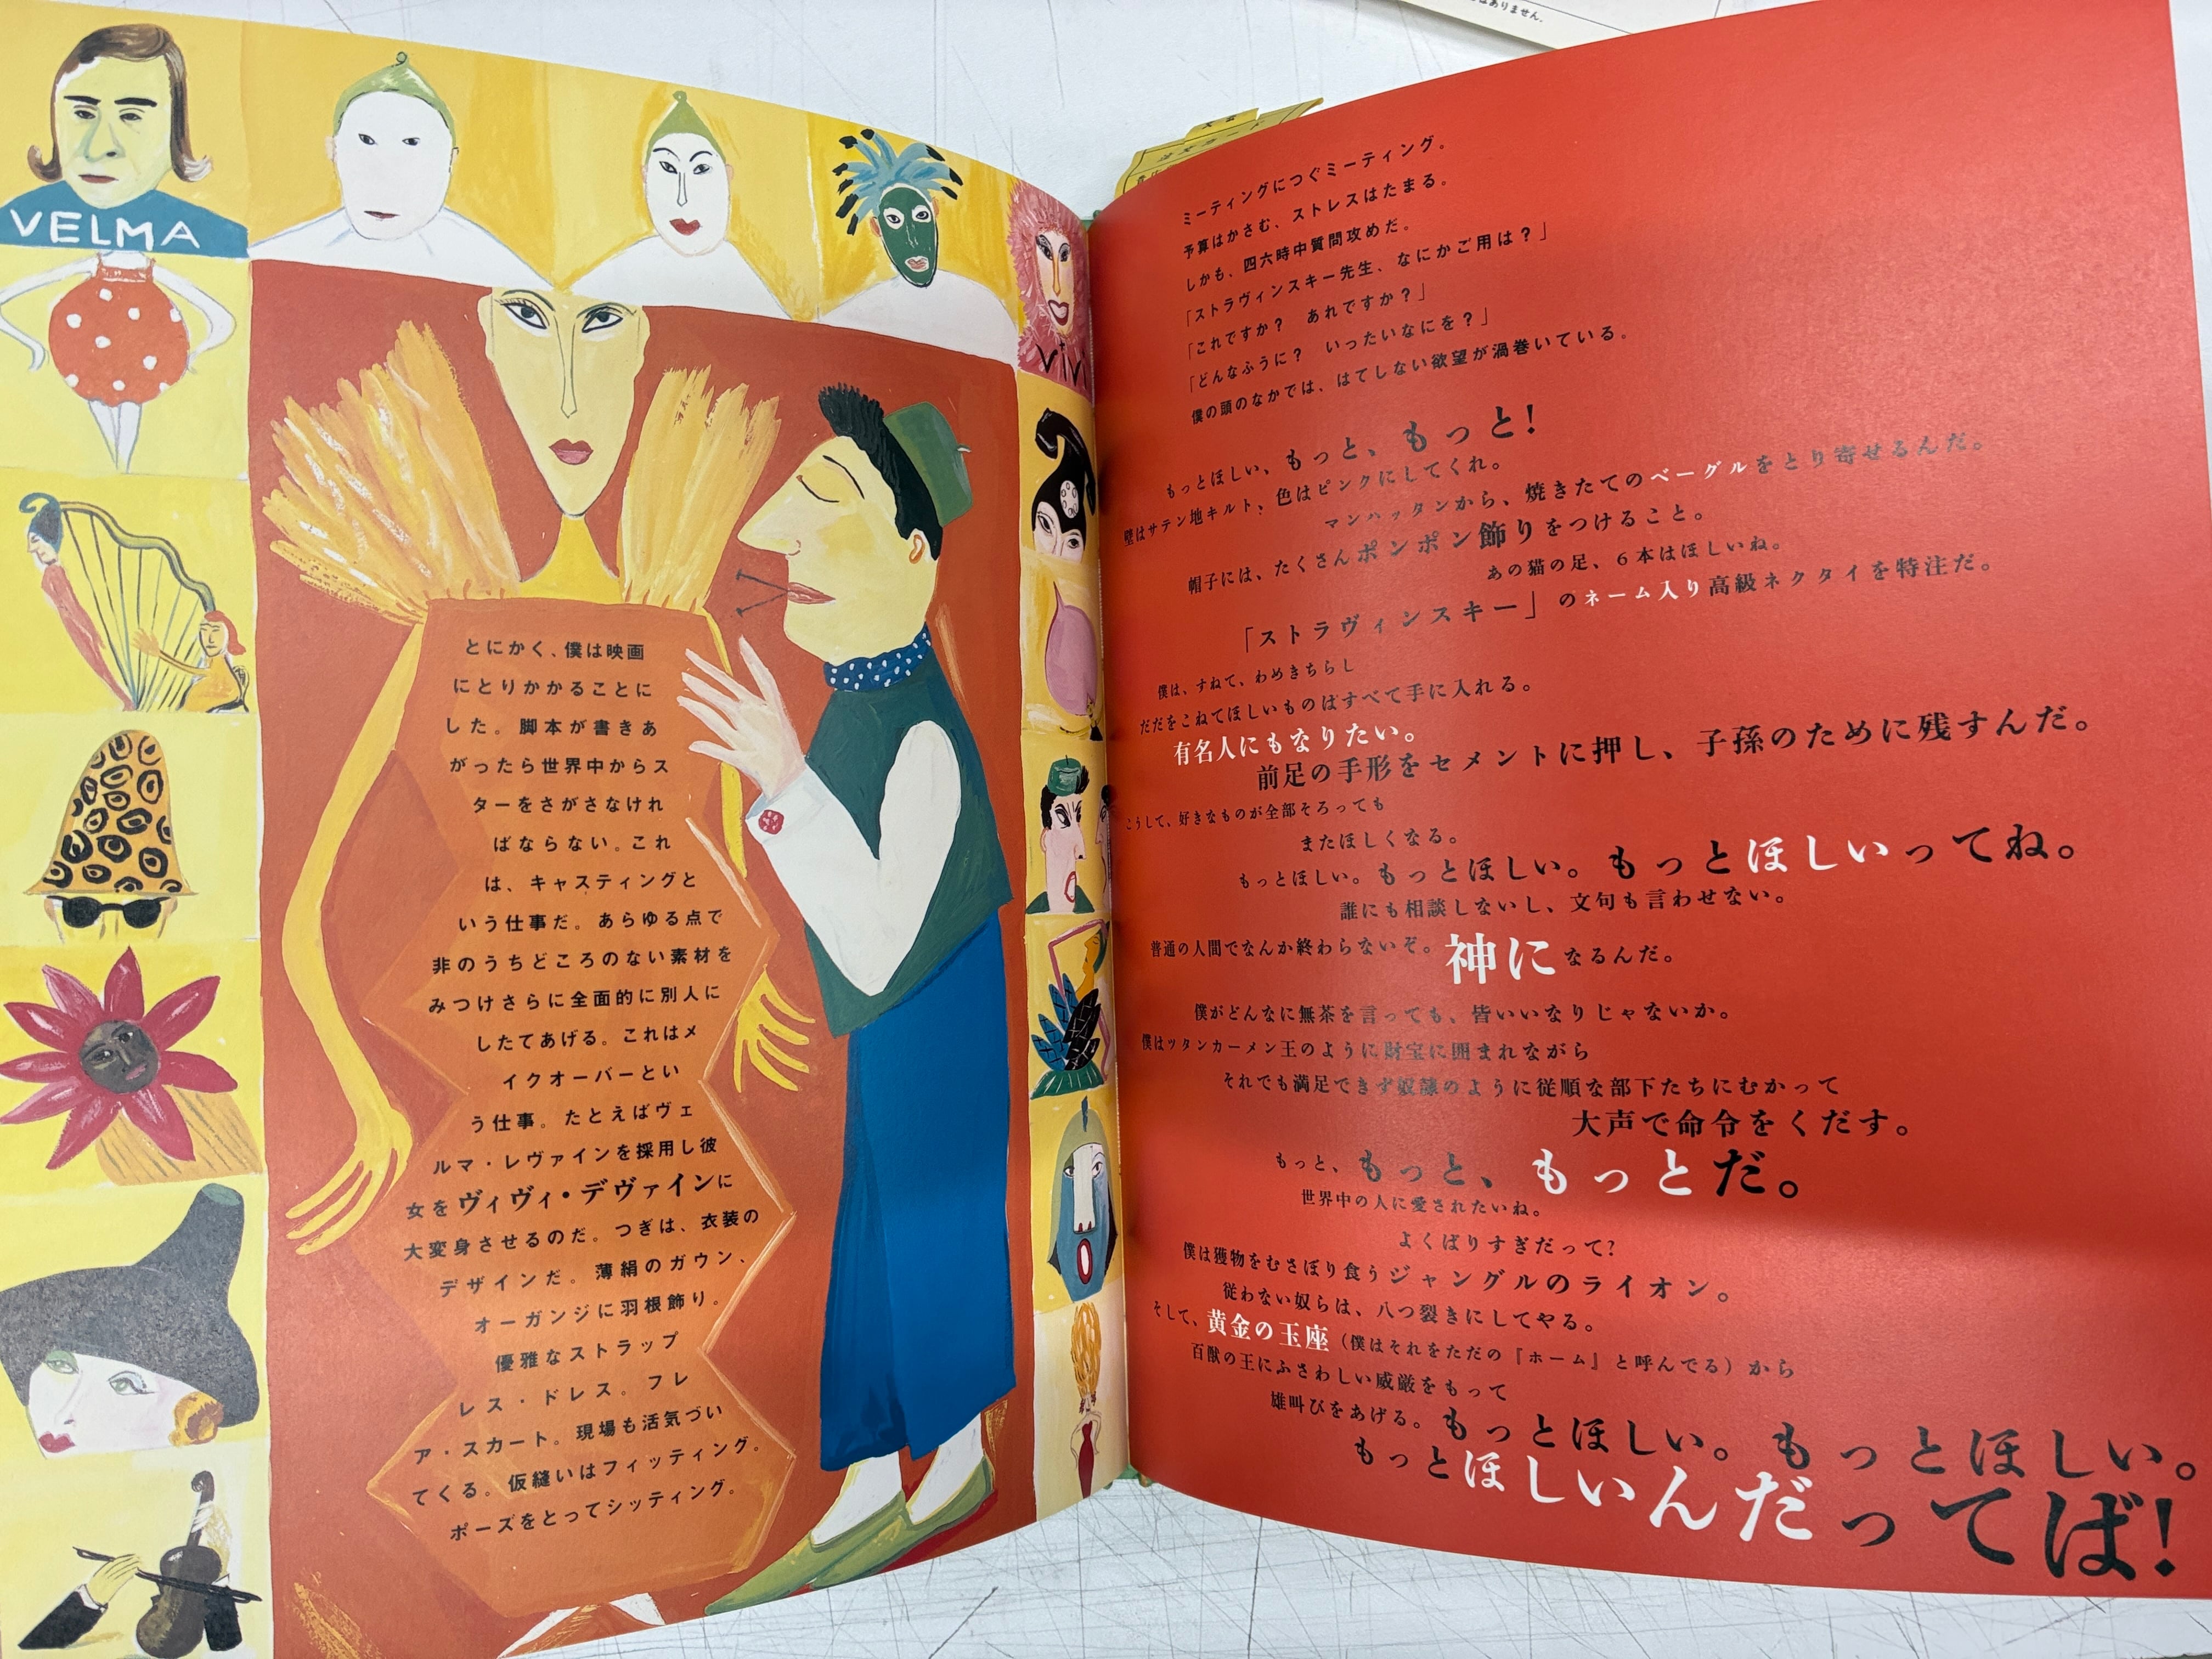 はありません。
VELMA
VIVI
とにかく、僕は映画
にとりかかることに
した。脚本が書きあ
がったら世界中からス
ターをさがさなけれ
ばならない。これ
は、キャスティングと
いう仕事だ。あらゆる点で
非のうちどころのない素材を
みつけさらに全面的に別人に
したてあげる。これはメ
イクオーバーとい
う仕事。たとえばヴェ
ルマ・レヴァインを採用し彼
女をヴィヴィ・デヴァインに
大変身させるのだ。つぎは、衣装の
デザインだ。薄絹のガウン、
オーガンジに羽根飾り。
優雅なストラップ
レス・ドレス。フレ
ア・スカート。現場も活気づい
てくる。仮縫いはフィッティング。
ポーズをとってシッティング。
ミーティングにつぐミーティング。
予算はかさむ、ストレスはたまる。
しかも、四六時中質問攻めだ。
「ストラヴィンスキー先生、なにかご用は？」
「これですか？　あれですか？」
「どんなふうに？　いったいなにを？」
僕の頭のなかでは、はてしない欲望が渦巻いている。
もっとほしい、もっと、もっと！
壁はサテン地キルト、色はピンクにしてくれ。
マンハッタンから、焼きたてのベーグルをとり寄せるんだ。
帽子には、たくさんポンポン飾りをつけること。
あの猫の足、6本はほしいね。
「ストラヴィンスキー」のネーム入り高級ネクタイを特注だ。
僕は、すねて、わめきちらし
だだをこねてほしいものはすべて手に入れる。
有名人にもなりたい。
前足の手形をセメントに押し、子孫のために残すんだ。
こうして、好きなものが全部そろっても
またほしくなる。
もっとほしい。もっとほしい。もっとほしいってね。
誰にも相談しないし、文句も言わせない。
普通の人間でなんか終わらないぞ。神になるんだ。
僕がどんなに無茶を言っても、皆いいなりじゃないか。
僕はツタンカーメン王のように財宝に囲まれながら
それでも満足できず奴隷のように従順な部下たちにむかって
大声で命令をくだす。
もっと、もっと、もっとだ。
世界中の人に愛されたいね。
よくばりすぎだって？
僕は獲物をむさぼり食うジャングルのライオン。
従わない奴らは、八つ裂きにしてやる。
そして、黄金の玉座（僕はそれをただの『ホーム』と呼んでる）から
百獣の王にふさわしい威厳をもって
雄叫びをあげる。もっとほしい。もっとほしい。
もっとほしいんだってば！